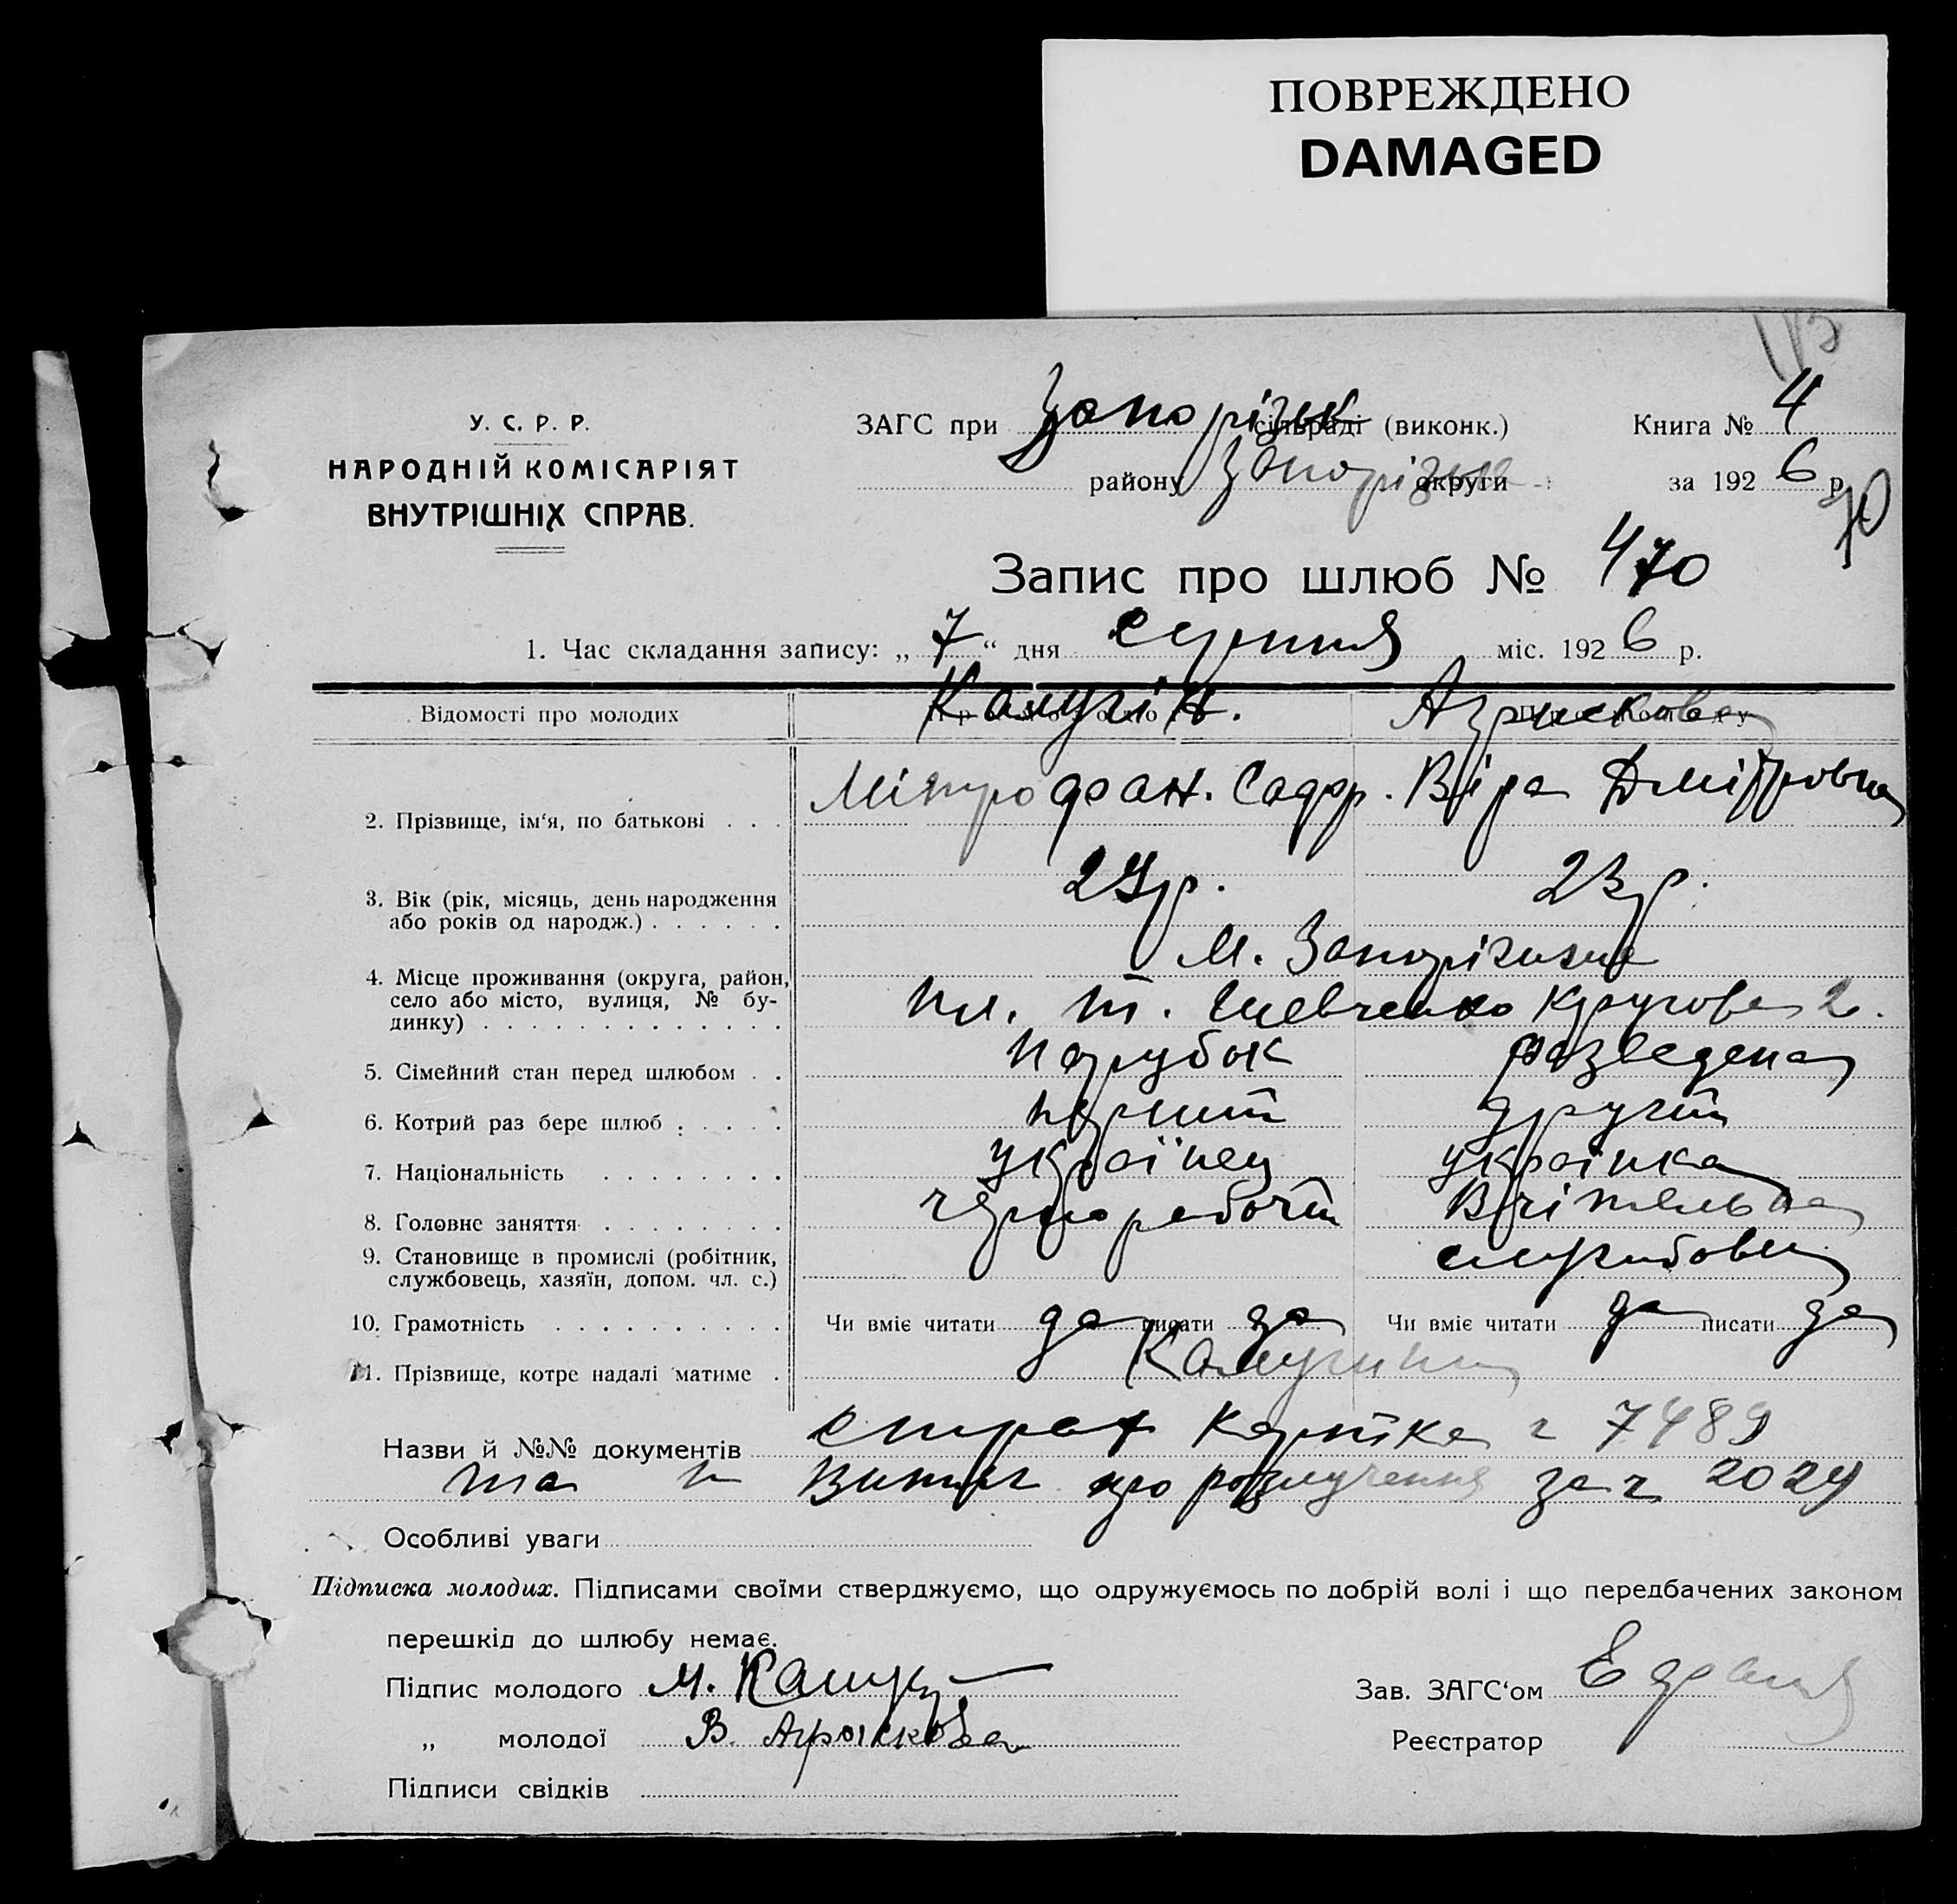 ПОВРЕЖДЕНО
DAMAGED
У. С. Р. Р.
НАРОДНІЙ КОМІСАРІЯТ
ВНУТРІШНІХ СПРАВ.
ЗАГС при Запорізьк сільраді (виконк.)
району Запорізьк округи
Книга № 4
за 1926 р.
70
Запис про шлюб № 470
1. Час складання запису: „7“ дня серпня міс. 1926 р.
Відомості про молодих Калугін.
2. Прізвище, ім'я, по батькові . . . Мітрофан. Софр. Віра Дмітровна
3. Вік (рік, місяць, день народження
або років од народж.) . . . . . . 29 р. 23 р.
м. Запоріжжя
4. Місце проживання (округа, район,
село або місто, вулиця, № бу-
динку) . . . . . . . . . . . . . пл. т. Шевченко Кругова 2.
5. Сімейний стан перед шлюбом . . парубок розведена
6. Котрий раз бере шлюб . . . . . перший другий
7. Національність . . . . . . . . українец українка
8. Головне заняття . . . . . . . . чорноробочий Вчітелька
9. Становище в промислі (робітник,
службовець, хазяїн, допом. чл. с.) службовец
10. Грамотність . . . . . . . . . . Чи вміє читати да писати да Чи вміє читати да писати да
11. Прізвище, котре надалі матиме . Калугини
Назви й №№ документів страх картка ч 7489
та Витяг про розлучення за ч 2024
Особливі уваги
Підписка молодих. Підписами своїми стверджуємо, що одружуємось по добрій волі і що передбачених законом
перешкід до шлюбу немає.
Підпис молодого М. Калуг
„ молодої В.
Зав. ЗАГС'ом
Реєстратор
Підписи свідків